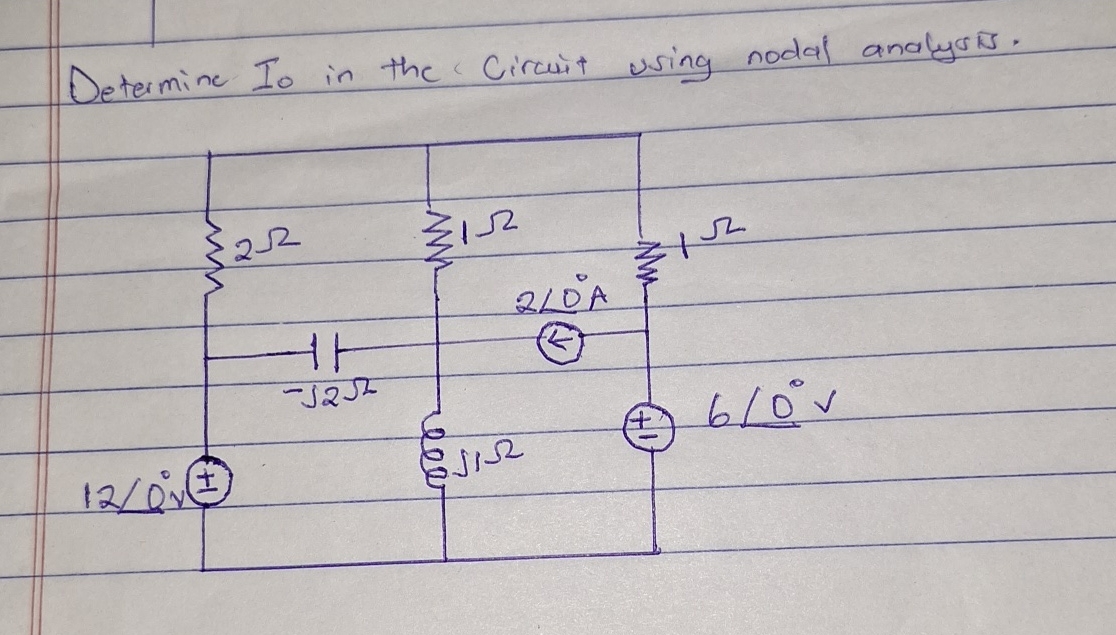 Determine Io in the Circuit using nodal analysis.
2Ω
1Ω
1Ω
2∠0°A
-J2Ω
6∠0°v
J1Ω
12∠0°v